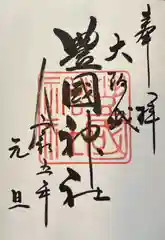 奉拝
大阪城
豊國神社
令和五年
元旦